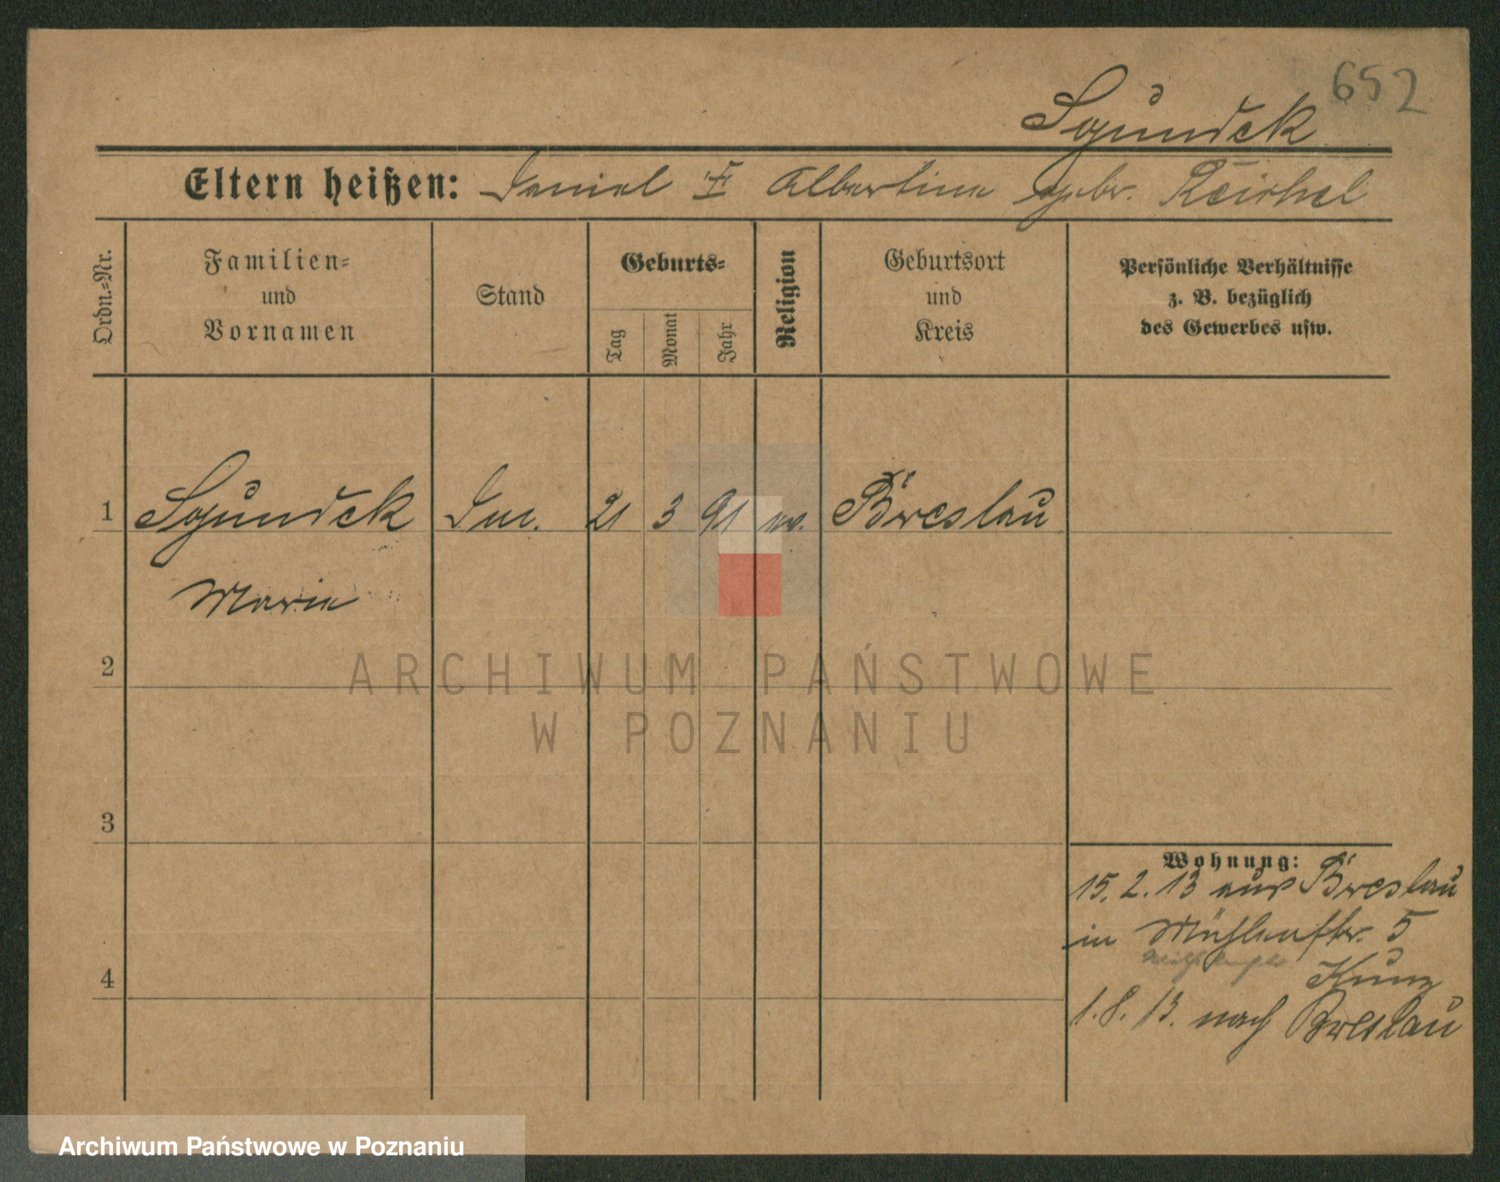 652
Sgundek
Eltern heißen: Daniel † Albertine gebr. Reichel
Ordn.-Nr.
Familien- und Vornamen
Stand
Geburts-
Tag
Monat
Jahr
Religion
Geburtsort und Kreis
Persönliche Verhältnisse
z. B. bezüglich
des Gewerbes usw.
1 21 3 91 ev. Breslau
Marie
2
3
4
Wohnung:
15. 2. 13 aus Breslau
in 5
Kunz
1. 8. 13. nach Breslau
ARCHIWUM PAŃSTWOWE
W POZNANIU
Archiwum Państwowe w Poznaniu